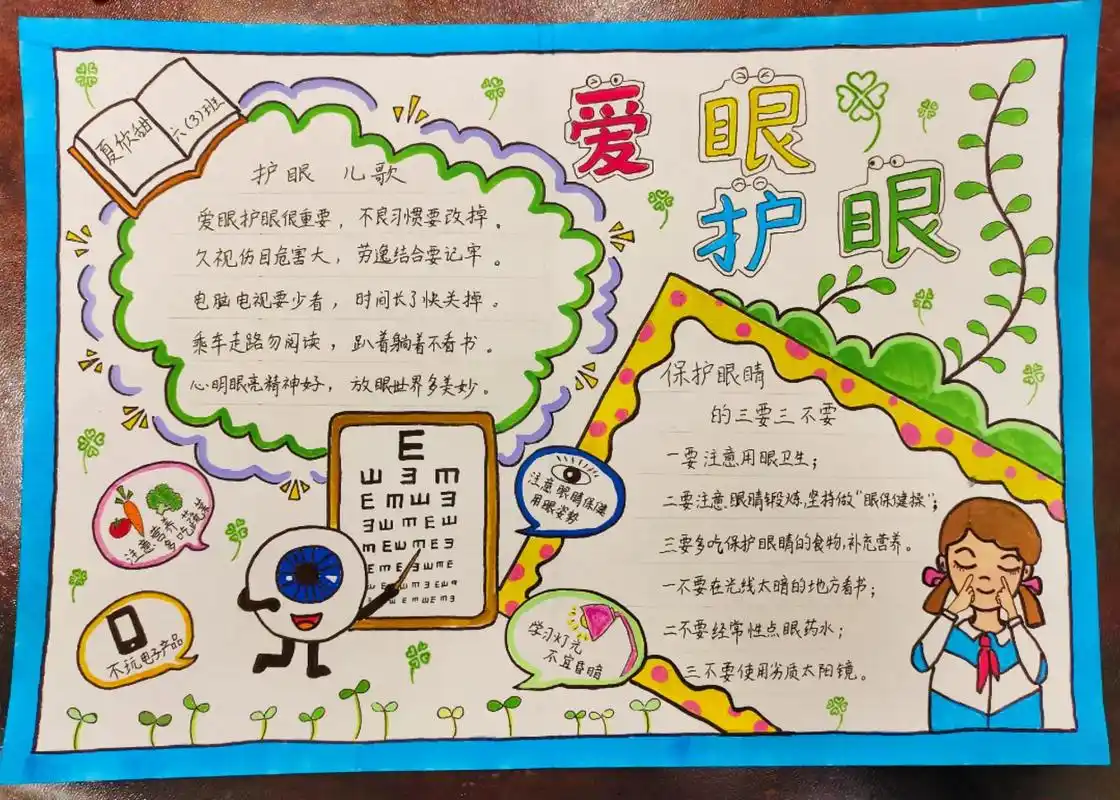 夏欣甜
六(3)班
爱眼
护眼
护眼 儿歌
爱眼护眼很重要，不良习惯要改掉。
久视伤目危害大，劳逸结合要记牢。
电脑电视要少看，时间长了快关掉。
乘车走路勿阅读，趴着躺着不看书。
心明眼亮精神好，放眼世界多美妙。
E
E M W E
注意眼睛保健
用眼姿势
注意营养
多吃蔬菜
不玩电子产品
学习灯光
不宜昏暗
保护眼睛
的三要三不要
一要注意用眼卫生；
二要注意眼睛锻炼,坚持做"眼保健操"；
三要多吃保护眼睛的食物,补充营养。
一不要在光线太暗的地方看书；
二不要经常性点眼药水；
三不要使用劣质太阳镜。